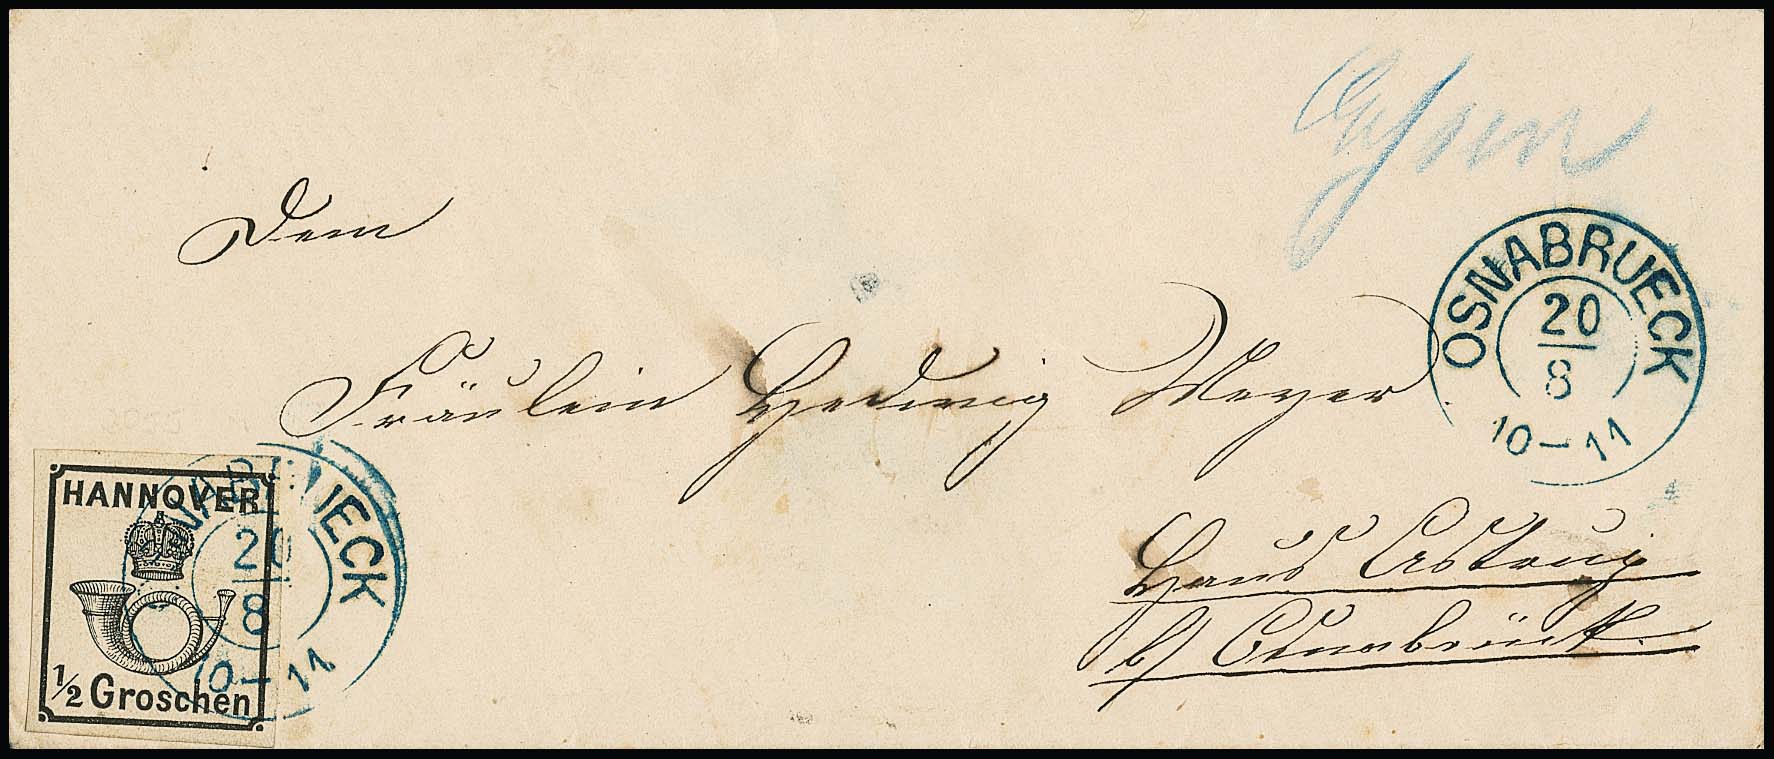 Dem
Fräulein Hedwig Meyer
Haus Astrup
b/ Osnabrück.
OSNABRUECK
20
8
10-11
HANNOVER
1/2 Groschen
NABRUECK
20
8
10-11